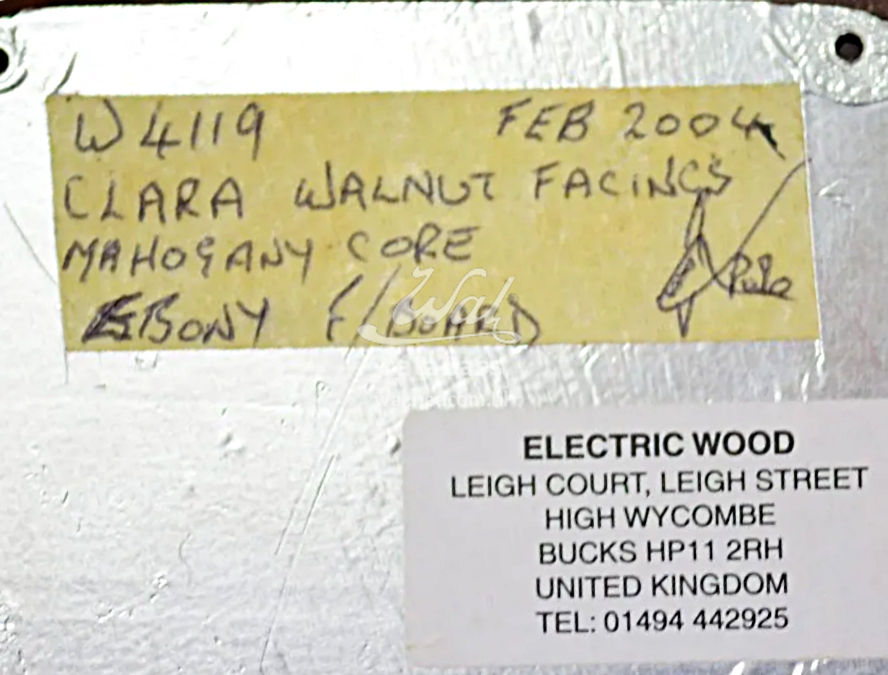 W 4119 FEB 2004
CLARA WALNUT FACINGS
MAHOGANY CORE
EBONY F/BOARD
Wal
ELECTRIC WOOD
LEIGH COURT, LEIGH STREET
HIGH WYCOMBE
BUCKS HP11 2RH
UNITED KINGDOM
TEL: 01494 442925